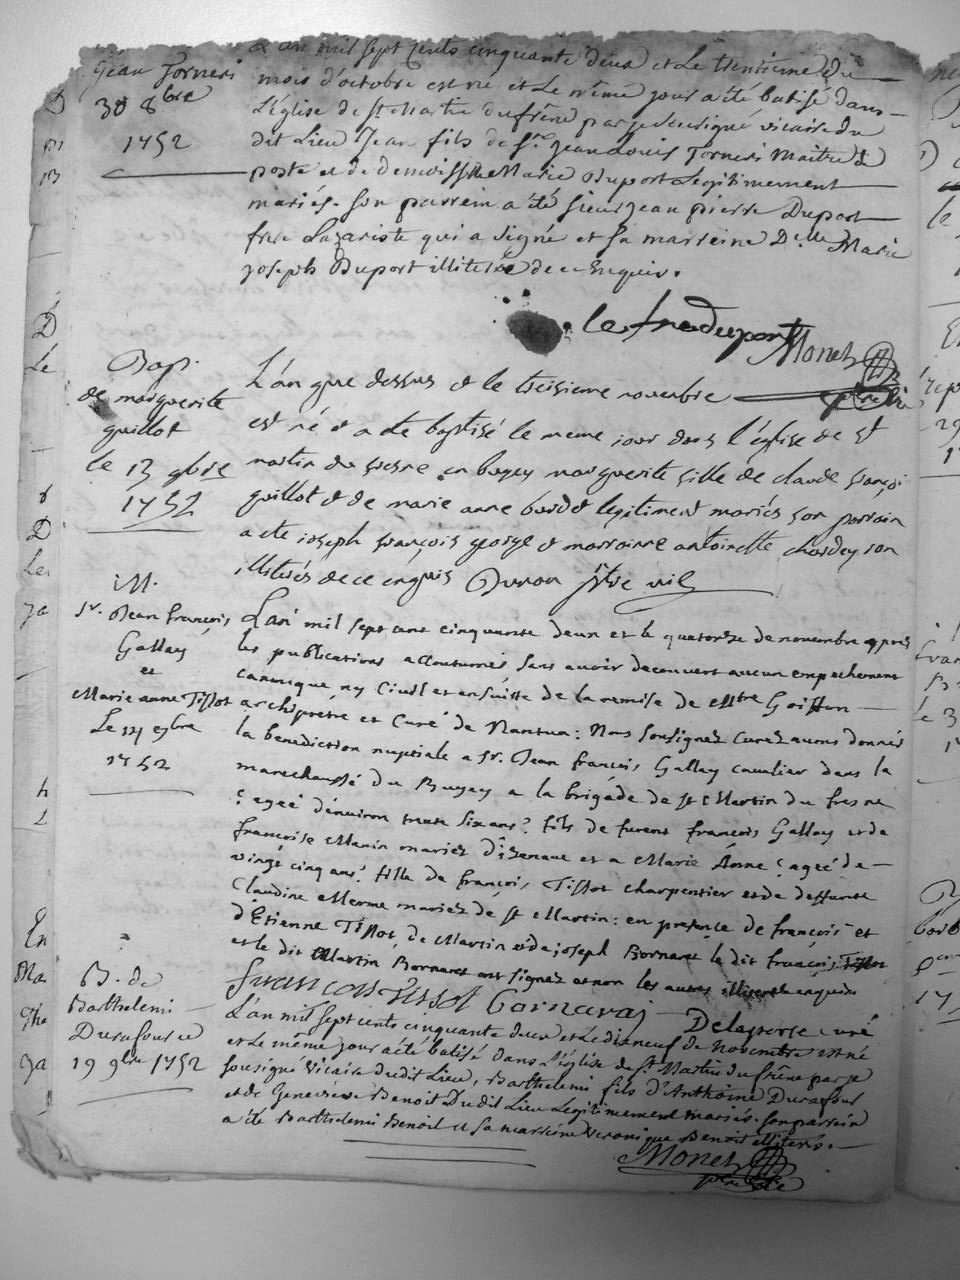 Jean Torneri
30 8bre
1752
L'an mil sept cents cinquante deux et le trentieme du
mois d'octobre est né et le même jour a été batisé dans
l'église de St Martin du frêne par je soussigné vicaire du
dit lieu Jean fils de Sr. Jean Louis Torneri Maitre de
poste et de demoiselle Marie Duport legitimement
mariés. son parrein a été sieur Jean pierre Duport
frere Lazariste qui a signé et sa marreine Dlle Marie
Joseph Duport illiterée de ce Enquis.
le frere duport
Monet
Bap.
de marguerite
guillot
le 13 9bre
1752
L'an que dessus et le treisieme novembre
est né et a ete baptisé le meme jour dans l'église de st
martin du fresne en bugey marguerite fille de claude françoi
guillot et de marie anne bordet legitiment mariés son parrain
a ete joseph françois george et marrainne antoinette chardeyron
illiterés de ce enquis
M.
Sr. Jean francois
Gallay
et
Marie anne Tissot
Le 14 9bre
1752
L'an mil sept cent cinquante deux et le quatorze de novembre apres
les publications accoutumés sans avoir decouvert aucun empechement
canonique ny Civil et ensuitte de la remise de Mtre Goiffon
archiprêtre et Curé de Nantua: Nous soussignez Curez avons donnés
la benediction nuptiale a Sr. Jean francois Gallay cavalier dans la
marechaussé du Bugey a la brigade de st Martin du fresne
agée d'environ trente six ans fils de furent françois Gallay et de
francoise Manin mariez et a Marie Anne agée de
vingt cinq ans fille de françois Tissot charpentier et de deffunte
Claudine Merme mariez de st Martin: en presence de francois et
d'Etienne Tissot, de Martin et de joseph Bornaret le dit francois Tissot
et le dit Martin Bornaret ont signez et non les autres illiterés enquis
francois Tissot Bornaret Delaperse curé
B. de
Barthelemi
Durafour ce
19 9bre 1752
L'an mil sept cents cinquante deux et le dixneuf de Novembre est né
et le même jour a été batisé dans l'église de St Martin du frêne par je
soussigné vicaire dudit Lieu, Barthelemi fils d'Anthoine Durafour
et de Genevieve Benoit Dudit Lieu Legitimement mariés. son parrein
a été Barthelemi Benoit et sa marreine Veronique Benoit illiterés.
Monet